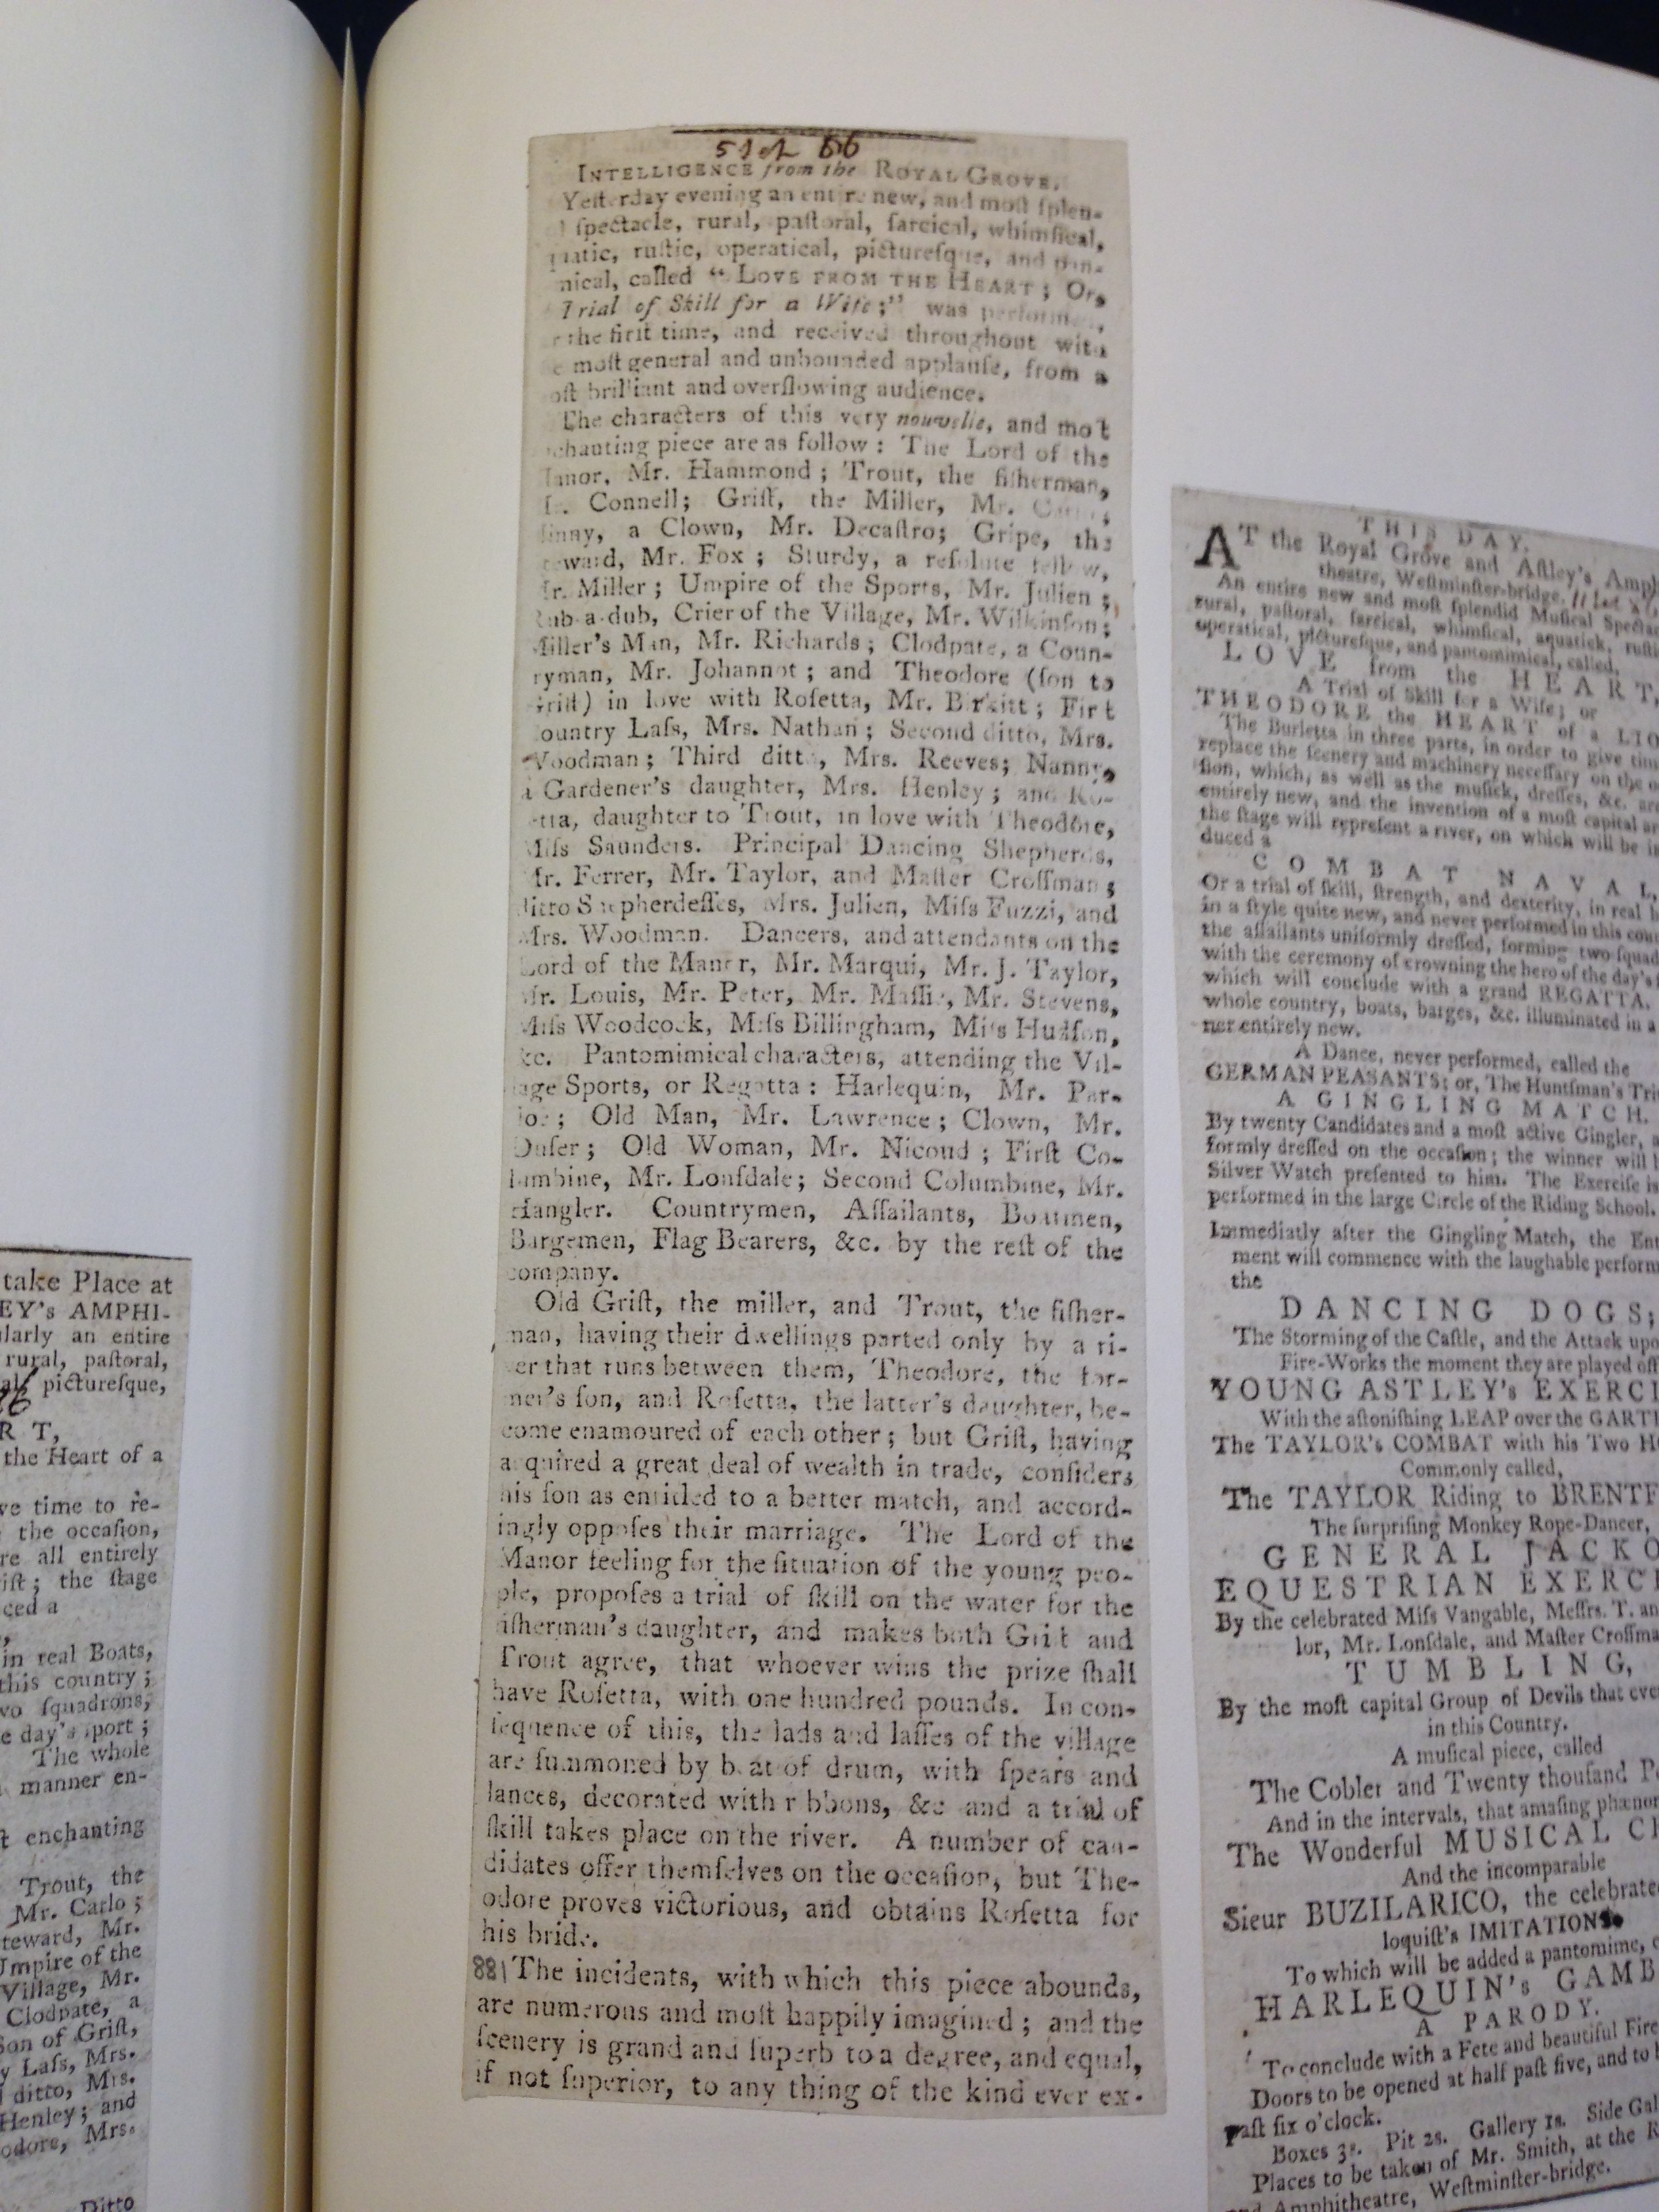 take Place at
EY's AMPHI-
ularly an entire
rural, paſtoral,
picturesque,
R T,
the Heart of a
ve time to re-
the occaſion,
re all entirely
iſt; the ſtage
ced a
in real Boats,
this country;
vo ſquadrons,
e day's ſport;
The whole
manner en-
ſt enchanting
Trout, the
Mr. Carlo;
teward, Mr.
Umpire of the
Village, Mr.
Clodpate, a
Son of Griſt,
y Laſs, Mrs.
ditto, Mrs.
Henley; and
odore, Mrs.
Ditto
INTELLIGENCE from the ROYAL GROVE.
Yeſterday evening an entire new, and moſt ſplen-
ſpectacle, rural, paſtoral, farcical, whimſical,
matic, ruſtic, operatical, pictureſque, and pan-
nical, called "LOVE FROM THE HEART; Or,
Trial of Skill for a Wife;" was perform
the firſt time, and received throughout with
moſt general and unbounded applauſe, from a
oſt brilliant and overflowing audience.
The characters of this very nouvelle, and moſt
chanting piece are as follow: The Lord of the
anor, Mr. Hammond; Trout, the fiſherman,
Connell; Griſt, the Miller, Mr.
inny, a Clown, Mr. Decaſtro; Gripe, the
eward, Mr. Fox; Sturdy, a reſolute fellow,
Mr. Miller; Umpire of the Sports, Mr. Julien;
Rub-a-dub, Crier of the Village, Mr. Wilkinſon;
Miller's Man, Mr. Richards; Clodpate, a Coun-
ryman, Mr. Johannot; and Theodore (ſon to
Griſt) in love with Roſetta, Mr. Birkitt; Firſt
ountry Laſs, Mrs. Nathan; Second ditto, Mrs.
Woodman; Third ditto, Mrs. Reeves; Nanny,
a Gardener's daughter, Mrs. Henley; and Ro-
etta, daughter to Trout, in love with Theodore,
Miſs Saunders. Principal Dancing Shepherds,
Mr. Ferrer, Mr. Taylor, and Maſter Croſſman;
ditto Shepherdeſſes, Mrs. Julien, Miſs Fuzzi, and
Mrs. Woodman. Dancers, and attendants on the
Lord of the Manor, Mr. Marqui, Mr. J. Taylor,
Mr. Louis, Mr. Peter, Mr. Maſſie, Mr. Stevens,
Miſs Woodcock, Miſs Billingham, Miſs Hudſon,
&c. Pantomimical characters, attending the Vil-
lage Sports, or Regatta: Harlequin, Mr. Par-
Old Man, Mr. Lawrence; Clown, Mr.
Duſer; Old Woman, Mr. Nicoud; Firſt Co-
lumbine, Mr. Lonſdale; Second Columbine, Mr.
Hangler. Countrymen, Aſſailants, Boatmen,
Bargemen, Flag Bearers, &c. by the reſt of the
company.
Old Griſt, the miller, and Trout, the fiſher-
man, having their dwellings parted only by a ri-
ver that runs between them, Theodore, the for-
mer's ſon, and Roſetta, the latter's daughter, be-
come enamoured of each other; but Griſt, having
acquired a great deal of wealth in trade, conſiders
his ſon as entitled to a better match, and accord-
ingly oppoſes their marriage. The Lord of the
Manor feeling for the ſituation of the young peo-
ple, propoſes a trial of ſkill on the water for the
fiſherman's daughter, and makes both Griſt and
Trout agree, that whoever wins the prize ſhall
have Roſetta, with one hundred pounds. In con-
ſequence of this, the lads and laſſes of the village
are ſummoned by beat of drum, with ſpears and
lances, decorated with ribbons, &c and a trial of
ſkill takes place on the river. A number of can-
didates offer themſelves on the occaſion, but The-
odore proves victorious, and obtains Roſetta for
his bride.
881 The incidents, with which this piece abounds,
are numerous and moſt happily imagined; and the
ſcenery is grand and ſuperb to a degree, and equal,
if not ſuperior, to any thing of the kind ever ex-
THIS DAY.
AT the Royal Grove and Aſtley's Amph
theatre, Weſtminſter-bridge.
An entire new and moſt ſplendid Muſical Spectac
rural, paſtoral, farcical, whimſical, aquatick, ruſti
operatical, pictureſque, and pantomimical, called,
LOVE from the HEART,
A Trial of Skill for a Wife; or
THEODORE the HEART of a LIO
The Burletta in three parts, in order to give time
replace the ſcenery and machinery neceſſary on the o
ſion, which, as well as the muſick, dreſſes, &c. are
entirely new, and the invention of a moſt capital ar
the ſtage will repreſent a river, on which will be in
duced a
COMBAT NAVAL,
Or a trial of ſkill, ſtrength, and dexterity, in real b
in a ſtyle quite new, and never performed in this coun
the aſſailants uniformly dreſſed, forming two ſquad
with the ceremony of crowning the hero of the day's ſ
which will conclude with a grand REGATTA.
whole country, boats, barges, &c. illuminated in a
ner entirely new.
A Dance, never performed, called the
GERMAN PEASANTS; or, The Huntſman's Tri
A GINGLING MATCH.
By twenty Candidates and a moſt active Gingler, a
formly dreſſed on the occaſion; the winner will
Silver Watch preſented to him. The Exerciſe is
performed in the large Circle of the Riding School.
Immediatly after the Gingling Match, the Ent
ment will commence with the laughable perform
the
DANCING DOGS;
The Storming of the Caſtle, and the Attack upo
Fire-Works the moment they are played off
YOUNG ASTLEY's EXERCI
With the aſtoniſhing LEAP over the GARTE
The TAYLOR's COMBAT with his Two HO
Commonly called,
The TAYLOR Riding to BRENTF
The ſurpriſing Monkey Rope-Dancer,
GENERAL JACKO
EQUESTRIAN EXERCI
By the celebrated Miſs Vangable, Meſſrs. T. an
lor, Mr. Lonſdale, and Maſter Croſſma
TUMBLING,
By the moſt capital Group of Devils that eve
in this Country.
A muſical piece, called
The Cobler and Twenty thouſand P
And in the intervals, that amaſing phænom
The Wonderful MUSICAL CH
And the incomparable
Sieur BUZILARICO, the celebrate
loquiſt's IMITATIONS.
To which will be added a pantomime, c
HARLEQUIN's GAMB
A PARODY.
To conclude with a Fete and beautiful Fire
Doors to be opened at half paſt five, and to b
paſt ſix o'clock.
Boxes 3s. Pit 2s. Gallery 1s. Side Gal
Places to be taken of Mr. Smith, at the R
and Amphitheatre, Weſtminſter-bridge.